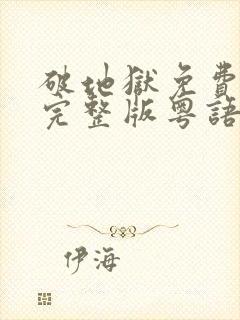 破地獄免費
完整版粵語
伊海